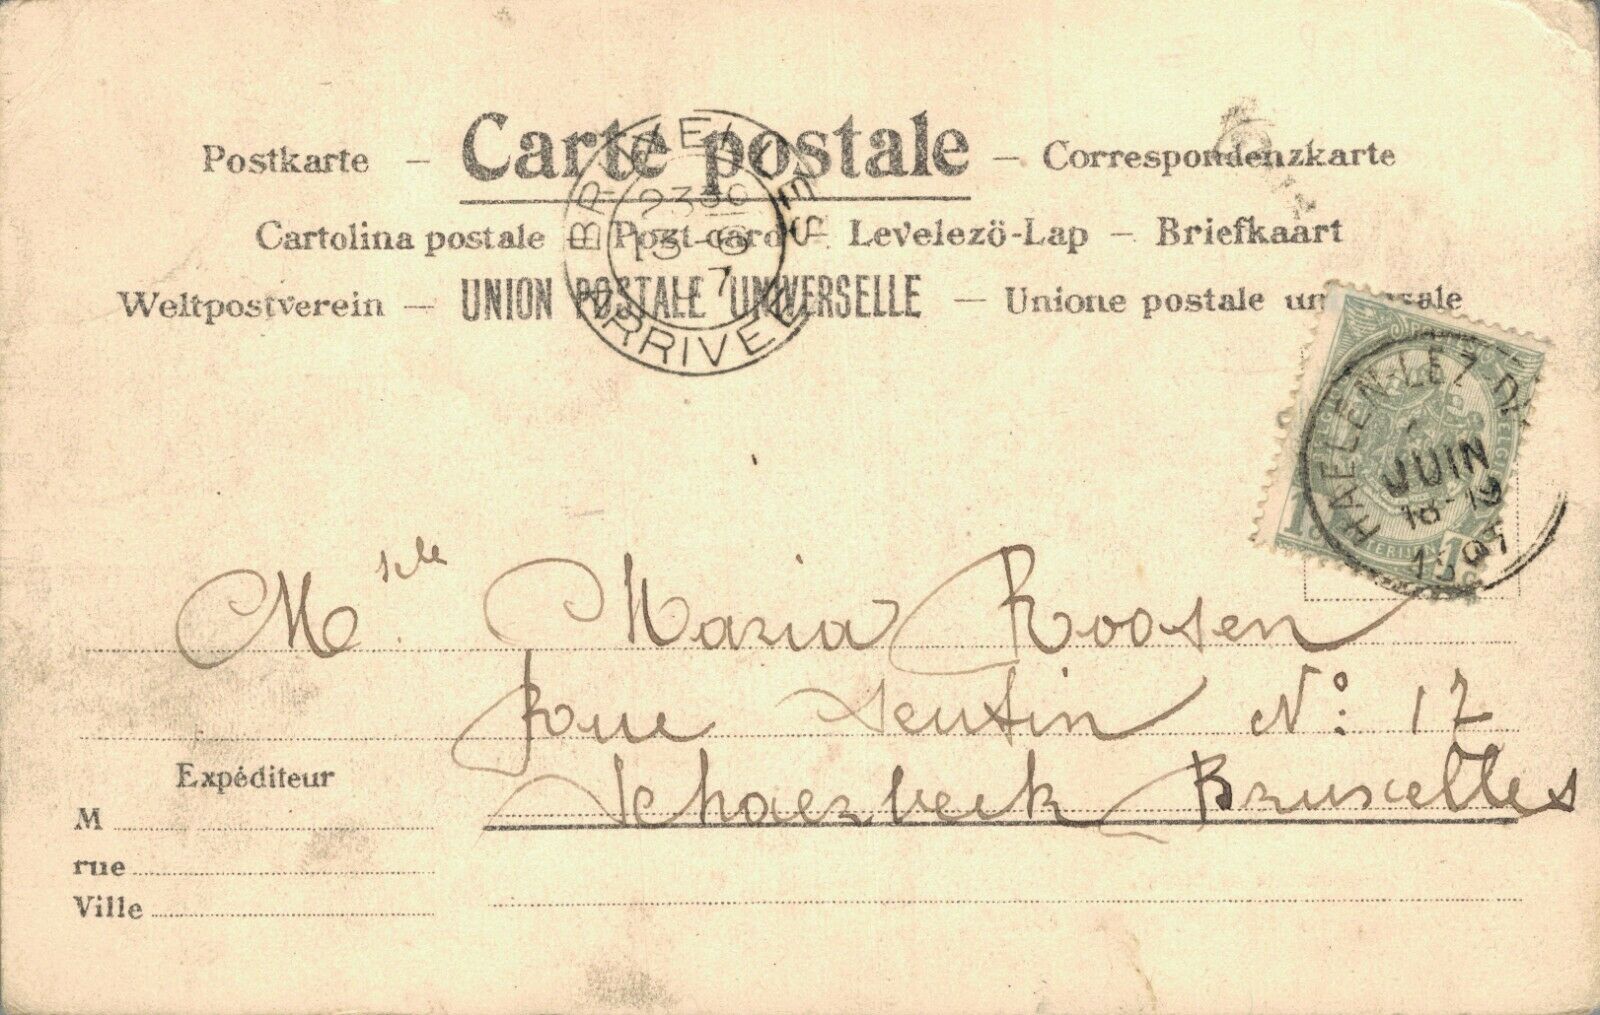 Postkarte – Carte postale – Correspondenzkarte
Cartolina postale – Post card – Levelezö-Lap – Briefkaart
Weltpostverein – UNION POSTALE UNIVERSELLE – Unione postale
BRUXELLES
ARRIVEE
HAELEN-LEZ
JUIN
18-19
Mselle Maria Roosen
Rue Seutin No: 17
Schaerbeek Bruxelles
Expéditeur
M
rue
Ville